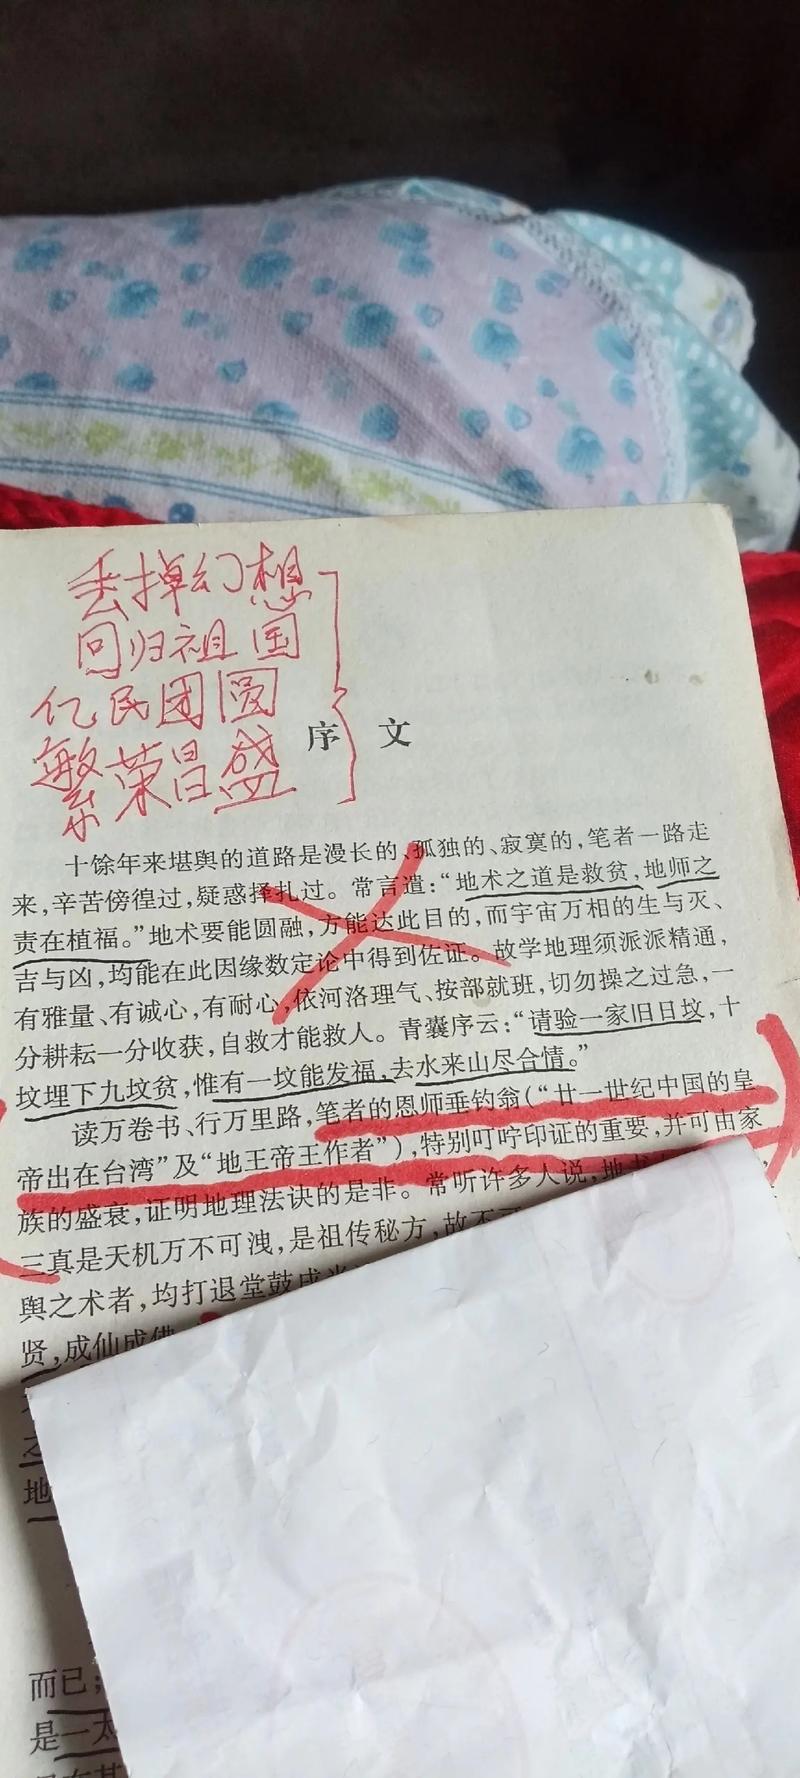 丢掉幻想
回归祖国
亿民团圆
繁荣昌盛
序 文
十馀年来堪舆的道路是漫长的、孤独的、寂寞的，笔者一路走
来，辛苦傍徨过，疑惑择扎过。常言道：“地术之道是救贫，地师之
责在植福。”地术要能圆融，方能达此目的，而宇宙万相的生与灭、
吉与凶，均能在此因缘数定论中得到佐证。故学地理须派派精通，
有雅量、有诚心，有耐心，依河洛理气、按部就班，切勿操之过急，一
分耕耘一分收获，自救才能救人。青囊序云：“请验一家旧日坟，十
坟埋下九坟贫，惟有一坟能发福，去水来山尽合情。”
读万卷书、行万里路，笔者的恩师垂钓翁（“廿一世纪中国的皇
帝出在台湾”及“地王帝王作者”），特别叮咛印证的重要，并可由家
族的盛衰，证明地理法诀的是非。常听许多人说，地
三真是天机万不可洩，是祖传秘方，故不
舆之术者，均打退堂鼓成
贤，成仙成佛
之
地
而已；
是一太